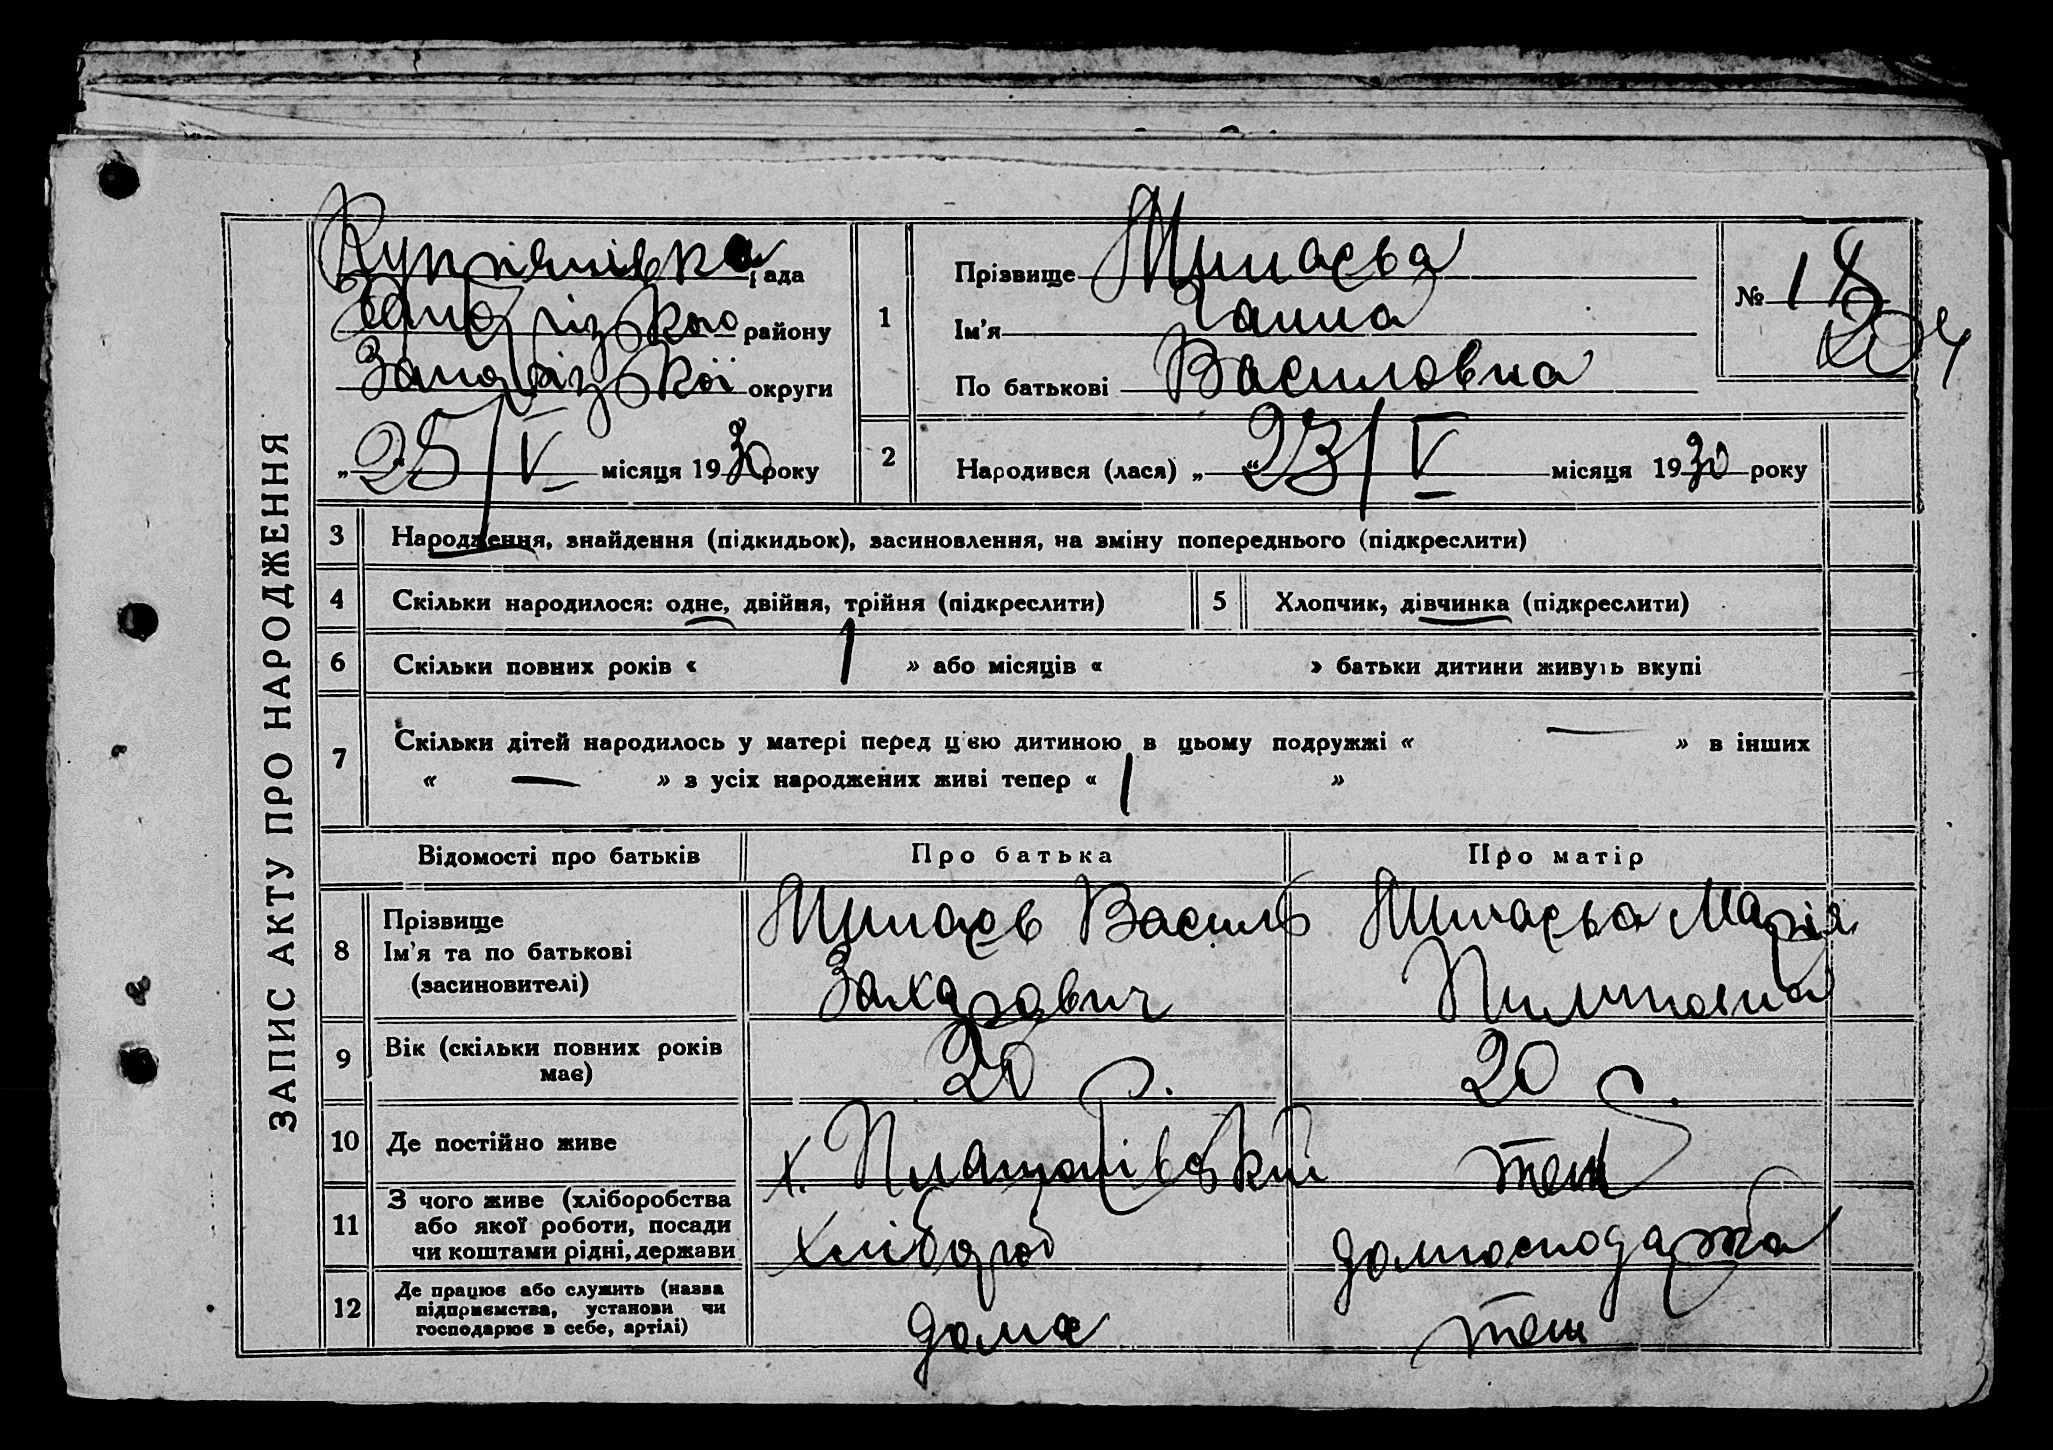 ЗАПИС АКТУ ПРО НАРОДЖЕННЯ
Купріянівка рада
Запорізького району
Запорізької округи
„25/V місяця 1930 року
1
Прізвище Минаєва
Ім'я Ганна
По батькові Василовна
№ 18
204
2
Народився (лася) „23/V місяця 1930 року
3 Народження, знайдення (підкидьок), засиновлення, на зміну попереднього (підкреслити)
4 Скільки народилося: одне, двійня, трійня (підкреслити)
5 Хлопчик, дівчинка (підкреслити)
6 Скільки повних років « 1 » або місяців « » батьки дитини живуть вкупі
7 Скільки дітей народилось у матері перед цією дитиною в цьому подружжі « — » в інших
« — » з усіх народжених живі тепер « 1 »
Відомості про батьків Про батька Про матір
8 Прізвище
Ім'я та по батькові
(засиновителі)
Минаєв Василь
Захарович
Минаєва Марія
Пилиповна
9 Вік (скільки повних років
має)
20 р.
20 р.
10 Де постійно живе
х. Платонівський
теж
11 З чого живе (хліборобства
або якої роботи, посади
чи коштами рідні, держави
хлібороб
домгосподарка
12 Де працює або служить (назва
підприємства, установи чи
господарює в себе, артілі)
дома
теж